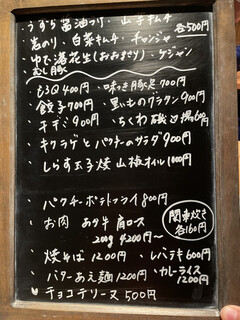 うずら醤油フリー・山芋キムチ
岩のり・白菜キムチ・チャンジャ 各500円
・ゆで落花生(おおまさり)・ケジャン
・むし豚
・もろQ 400円・味つき豚足 700円
・餃子 700円・黒いものグラタン 900円
・チヂミ 900円・ちくわ磯辺揚 600円
・キクラゲとパクチーのサラダ 900円
・しらす玉子焼 山椒オイル 1000円
・パクチーポテトフライ 800円
・お肉 あか牛 肩ロース
200g 4200円〜
関東炊き 各160円
・焼そば 1200円・レバテキ 600円
・バターあえ麺 1200円・カレーライス 1200円
♥テリーヌ 500円